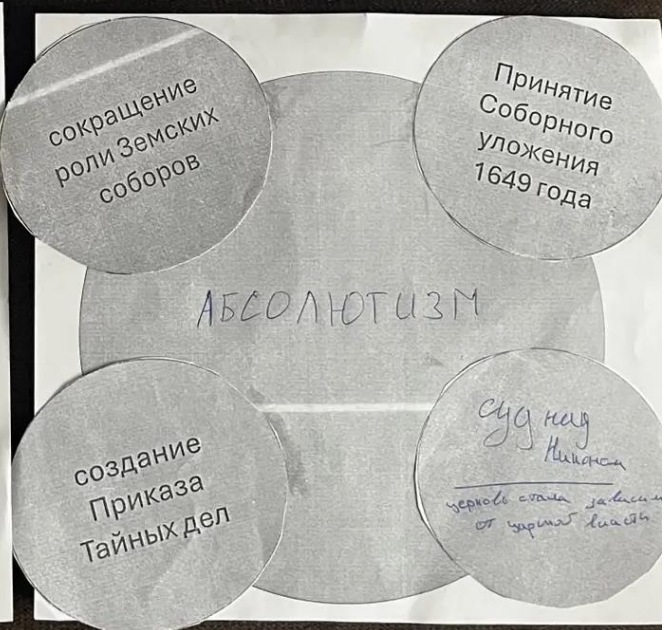 сокращение
роли Земских
соборов
Принятие
Соборного
уложения
1649 года
АБСОЛЮТИЗМ
создание
Приказа
Тайных дел
суд над
Никоном
церковь стала зависим
от царской власти